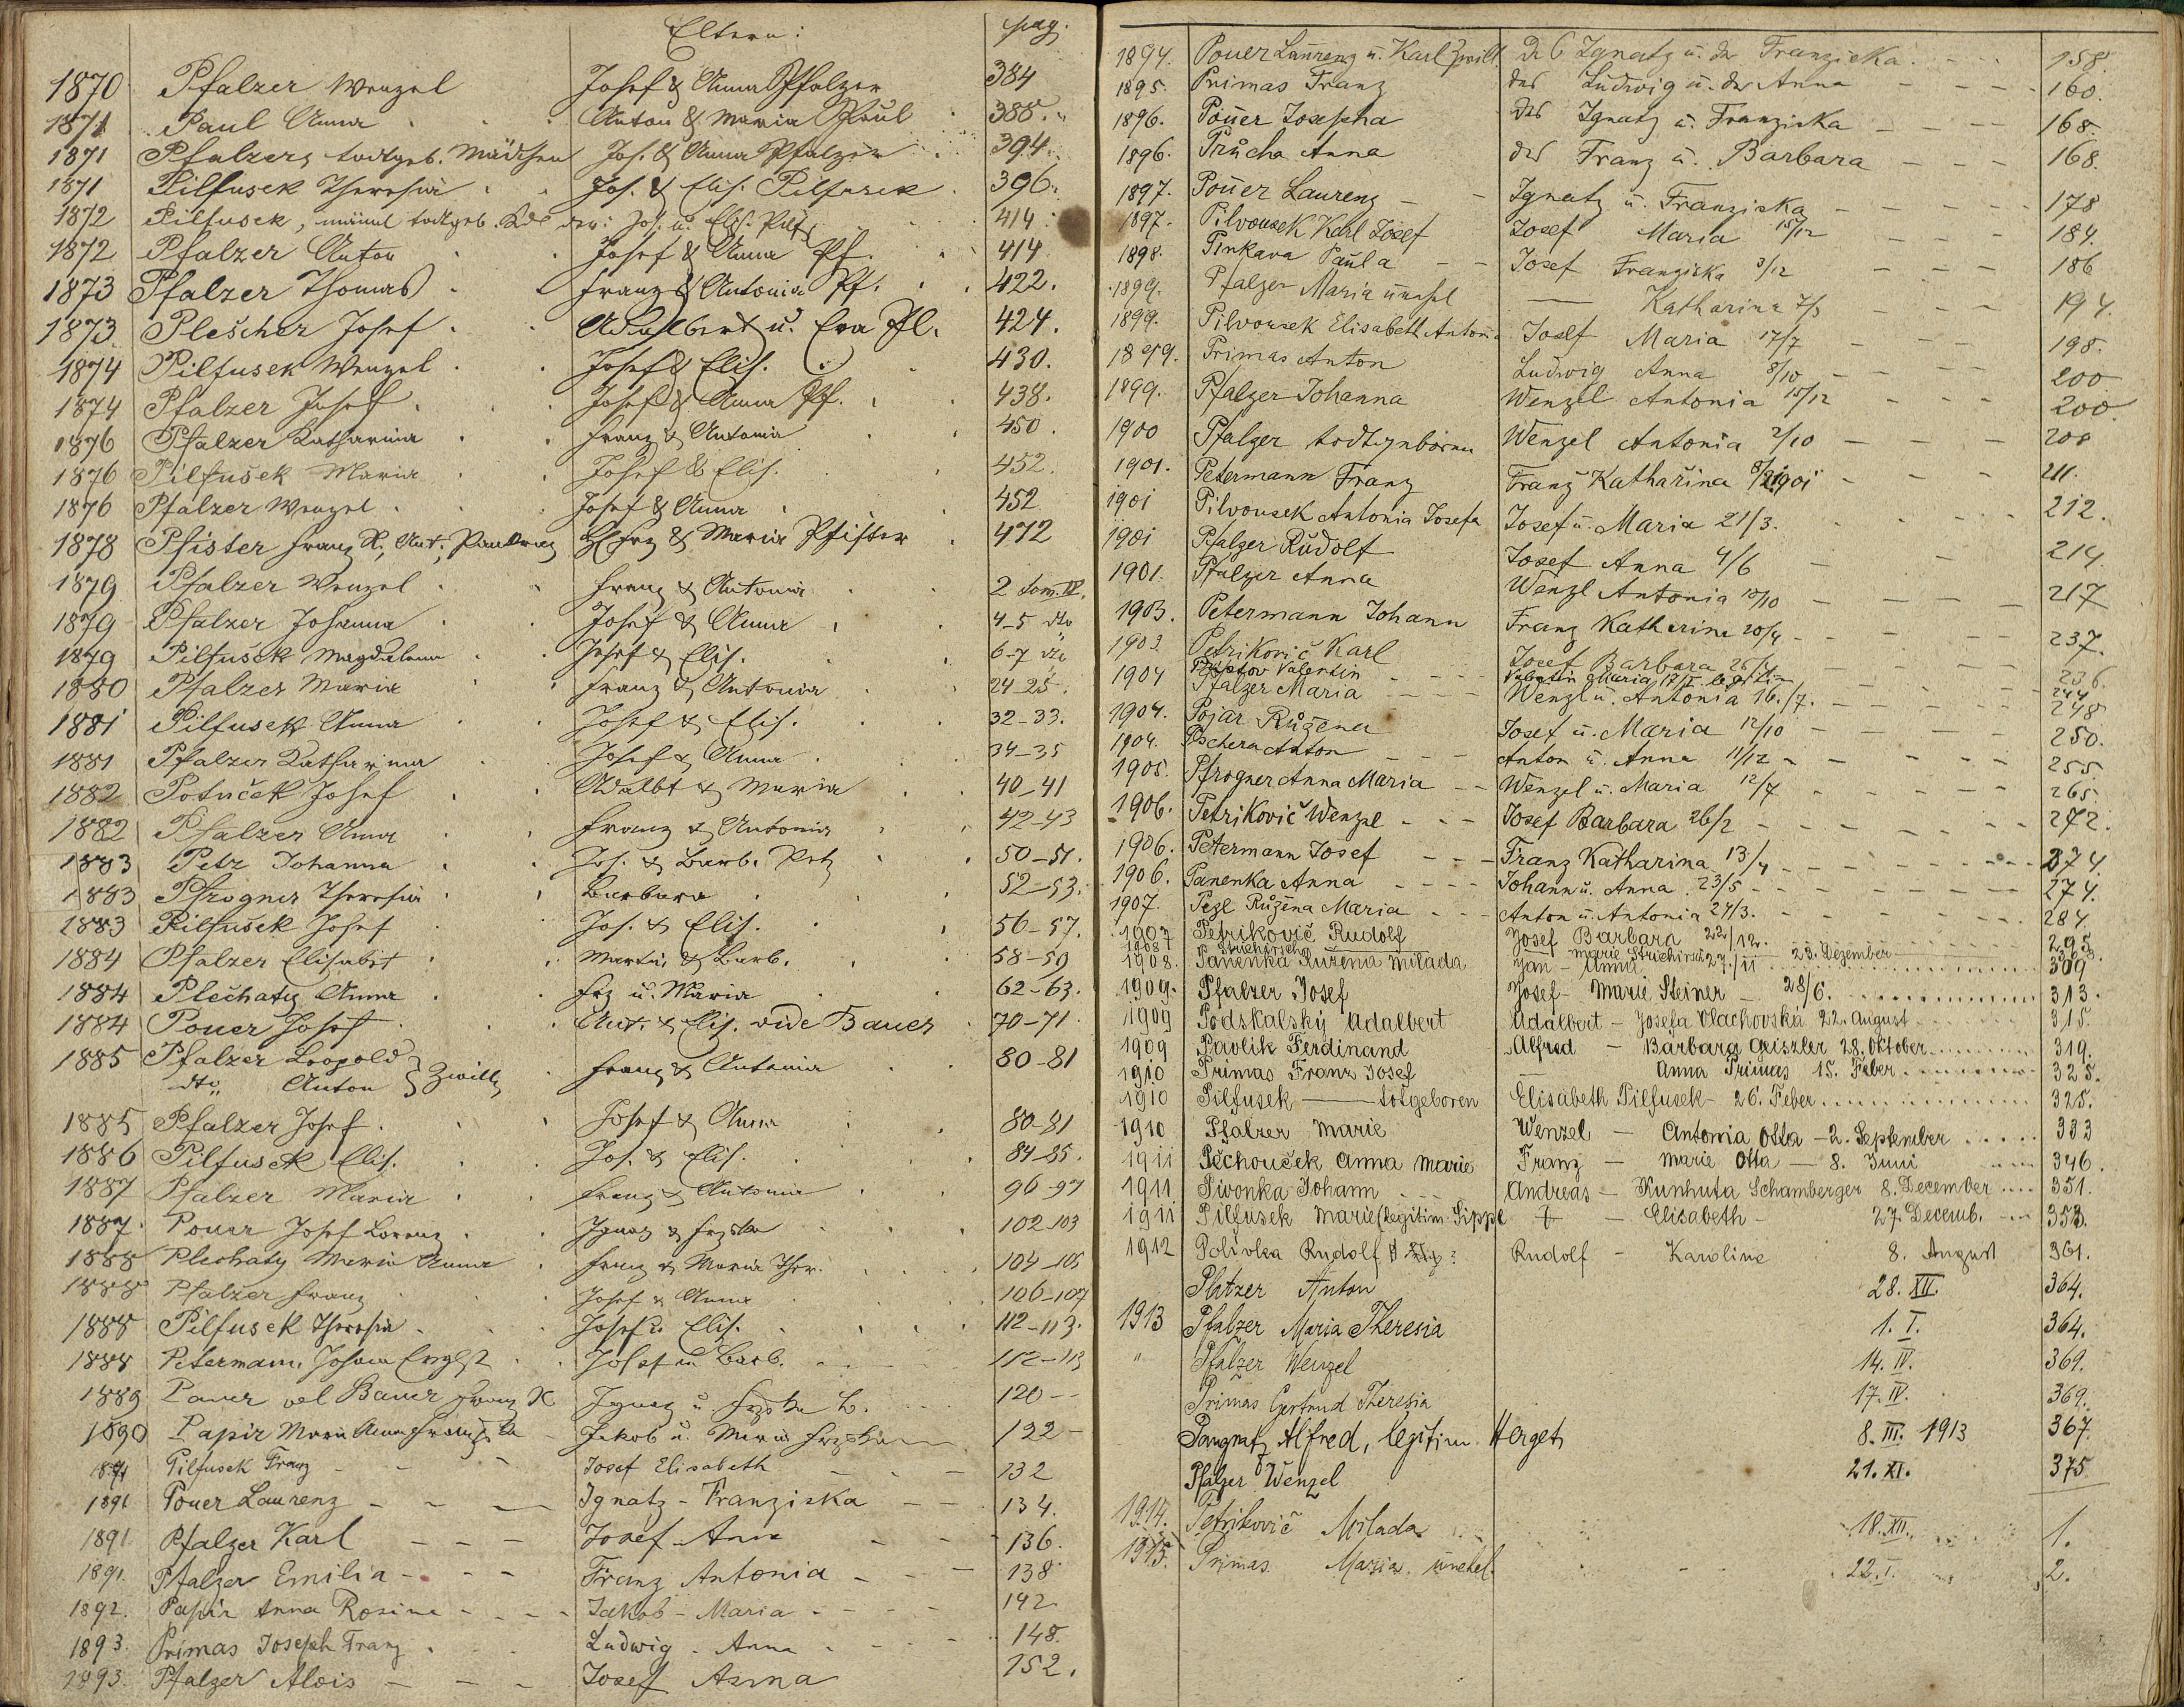 Eltern: pag.
1870 Pfalzer Wenzel Josef & Anna Pfalzer 384
1871 Paul Anna Anton & Maria Paul 388.
1871 Pfalzer, todtgeb. Mädchen Jos. & Anna Pfalzer 394.
1871 Pilfusek Theresia Jos. & Elis. Pilfusek 396.
1872 Pilfusek, männl todtgeb. Kd der: Jos. u. Elis. Pilf. 414
1872 Pfalzer Anton Josef & Anna Pf. 414
1873 Pfalzer Thomas Franz & Antonia Pf. 422.
1873 Plescher Josef Adalbert u. Eva Pl. 424.
1874 Pilfusek Wenzel Josef & Elis. 430.
1874 Pfalzer Josef Josef & Anna Pf. 438.
1876 Pfalzer Katharina Franz & Antonia 450.
1876 Pilfušek Maria Josef & Elis. 452.
1876 Pfalzer Wenzel Josef & Anna 452
1878 Pfister Franz X., Ant., Pankraz Frz & Maria Pfister 472
1879 Pfalzer Wenzel Franz & Antonia 2 tom. IV.
1879 Pfalzer Johanna Josef & Anna 4-5 dto
1879 Pilfušek Magdalena Josef & Elis. 6-7 dto
1880 Pfalzer Maria Franz & Antonia 24-25.
1881 Pilfusek Anna Josef & Elis. 32-33.
1881 Pfalzer Katharina Josef & Anna 34-35
1882 Potuček Josef Adalbt & Maria 40-41
1882 Pfalzer Anna Franz & Antonia 42-43
1883 Petz Johanna Jos. & Barb. Petz 50-51.
1883 Pfrogner Theresia Barbara 52-53.
1883 Pilfušek Josef Jos. & Elis. 56-57.
1884 Pfalzer Elisabet Martin & Barb. 58-59
1884 Plechaty Anna Frz u. Maria 62-63.
1884 Pouer Josef Ant. & Elis. vide Bauer 70-71
1885 Pfalzer Leopold } Zwillg Franz & Antonia 80-81
dto Anton
1885 Pfalzer Josef Josef & Anna 80-81
1886 Pilfusek Elis. Jos. & Elis. 84-85.
1887 Pfalzer Maria Franz & Antonia 96-97
1887 Pouer Josef Lorenz Ignaz & Frzska 102-103
1888 Plechaty Maria Anna Franz & Maria Ther. 104-105
1888 Pfalzer Franz Josef & Anna 106-107
1888 Pilfusek Theresia Josef u Elis. 112-113.
1888 Petermann Johann Josef u Barb. 112-113
1889 Pauer vel Bauer Franz X Ignaz u Frzska B. 120
1890 Papir Maria Anna Franziska Jakob u. Maria 122
1891 Pilfusek Franz Josef Elisabeth 132
1891 Pouer Laurenz Ignatz - Franziska 134.
1891 Pfalzer Karl Josef - Anna 136.
1891. Pfalzer Emilia Franz Antonia 138
1892. Papir Anna Rosina Jakob - Maria 142
1893. Primas Joseph Franz Ludwig - Anna 148.
1893. Pfalzer Alois Josef Anna 152.
1894. Pouer Laurenz u. Karl Zwill. Ds Ignatz u. der Franziska 158.
1895. Primas Franz des Ludwig u. der Anna 160.
1896. Pouer Josepha des Ignatz u. Franziska 168.
1896. Průcha Anna des Franz u. Barbara 168.
1897. Pouer Laurenz Ignatz u. Franziska 178
1897. Pilvousek Karl Josef Josef Maria 15/12 184.
1898. Pinkava Paula Josef Franziska 3/12 186
1899. Pfalzer Maria unehel Katharina 7/3 194.
1899. Pilvousek Elisabeth Antonia Josef Maria 17/7 198.
1899. Primas Anton Ludwig Anna 8/10 200
1899. Pfalzer Johanna Wenzel Antonia 15/12 200.
1900 Pfalzer todtgeboren Wenzel Antonia 2/10 208
1901. Petermann Franz Franz Katharina 8/2 1901 211.
1901 Pilvousek Antonia Josefa Josef u. Maria 21/3. 212.
1901 Pfalzer Rudolf Josef Anna 4/6 214.
1901. Pfalzer Anna Wenzl Antonia 10/10 217
1903. Petermann Johann Franz Katharina 20/4 237.
1903. Petrikovič Karl Josef Barbara 26/4 236.
Valentin Valentin Maria 17/II legitim 244
1904 Pfalzer Maria Wenzl u. Antonia 16./7. 248
1904. Pojar Růžena Josef u. Maria 12/10 250.
1904. Pschera Anton Anton u. Anna 11/12 255.
1905. Pfrogner Anna Maria Wenzel u. Maria 12/7 265.
1906. Petrikovič Wenzel Josef Barbara 26/2 272.
1906. Petermann Josef Franz Katharina 13/4 274.
1906. Panenka Anna Johann u. Anna 23/5 274.
1907. Pezl Růžena Maria Anton u. Antonia 24/3. 284.
1907 Petrikovič Rudolf Josef Barbara 22/12. 295
1908 23. Dezember
1908. Panenka Ružena Milada Jan - Anna 27./11 309
1909. Pfalzer Josef Josef - Marie Steiner - 28/6. 313.
1909 Podskalský Adalbert Adalbert - Josefa Vlachovská 22. August 315.
1909 Pavlik Ferdinand Alfred - Barbara Geiszler 28. Oktober 319.
1910 Primas Franz Josef Anna Primas 15. Feber 325.
1910 Pilfusek — totgeboren Elisabeth Pilfusek - 26. Feber 325.
1910 Pfalzer Marie Wenzel - Antonia Otta - 2. September 333
1911 Pěchouček Anna Marie Franz - Marie Otta - 8. Juni 346.
1911 Pivonka Johann Andreas - Kunhuta Schamberger 8. December 351.
1911 Pilfusek Marie (legitim. Sippl - Elisabeth - 27. Decemb. 353.
1912 Polivka Rudolf Rudolf - Karoline 8. August 361.
Platzer Anton 28. XII. 364.
1913 Pfalzer Maria Theresia 1. I. 364.
" Pfalzer Wenzel 14. IV. 369.
Primas Gertrud Theresia 17. IV. 369.
Pangratz Alfred, legitim. Herget 8. III. 1913 367.
Pfalzer Wenzel 21. XI. 375
1914. Petrikovič Milada 18. XII. 1.
1915. Primas Maria unehel. 22. I. 2.